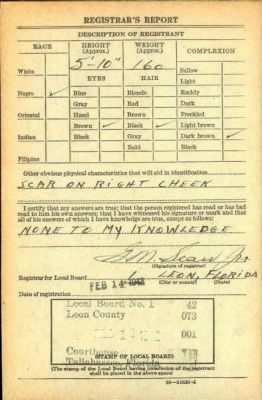 REGISTRAR'S REPORT
DESCRIPTION OF REGISTRANT
RACE HEIGHT (Approx.) WEIGHT (Approx.) COMPLEXION
5'-10" 160
White EYES HAIR Sallow
Light
Negro ✓ Blue Blonde Ruddy
Gray Red Dark
Oriental Hazel Brown Freckled
Brown ✓ Black ✓ Light brown
Indian Black Gray Dark brown ✓
Bald Black
Filipino
Other obvious physical characteristics that will aid in identification
SCAR ON RIGHT CHEEK
I certify that my answers are true; that the person registered has read or has had read to him his own answers; that I have witnessed his signature or mark and that all of his answers of which I have knowledge are true, except as follows:
NONE TO MY KNOWLEDGE
(Signature of registrar)
Registrar for Local Board 1 LEON, FLORIDA
(City or county) (State)
Date of registration FEB 14 1942
Local Board No. 1 42
Leon County 073
001
Courthouse
Tallahassee, Florida
STAMP OF LOCAL BOARD
(The stamp of the Local Board having jurisdiction of the registrant shall be placed in the above space)